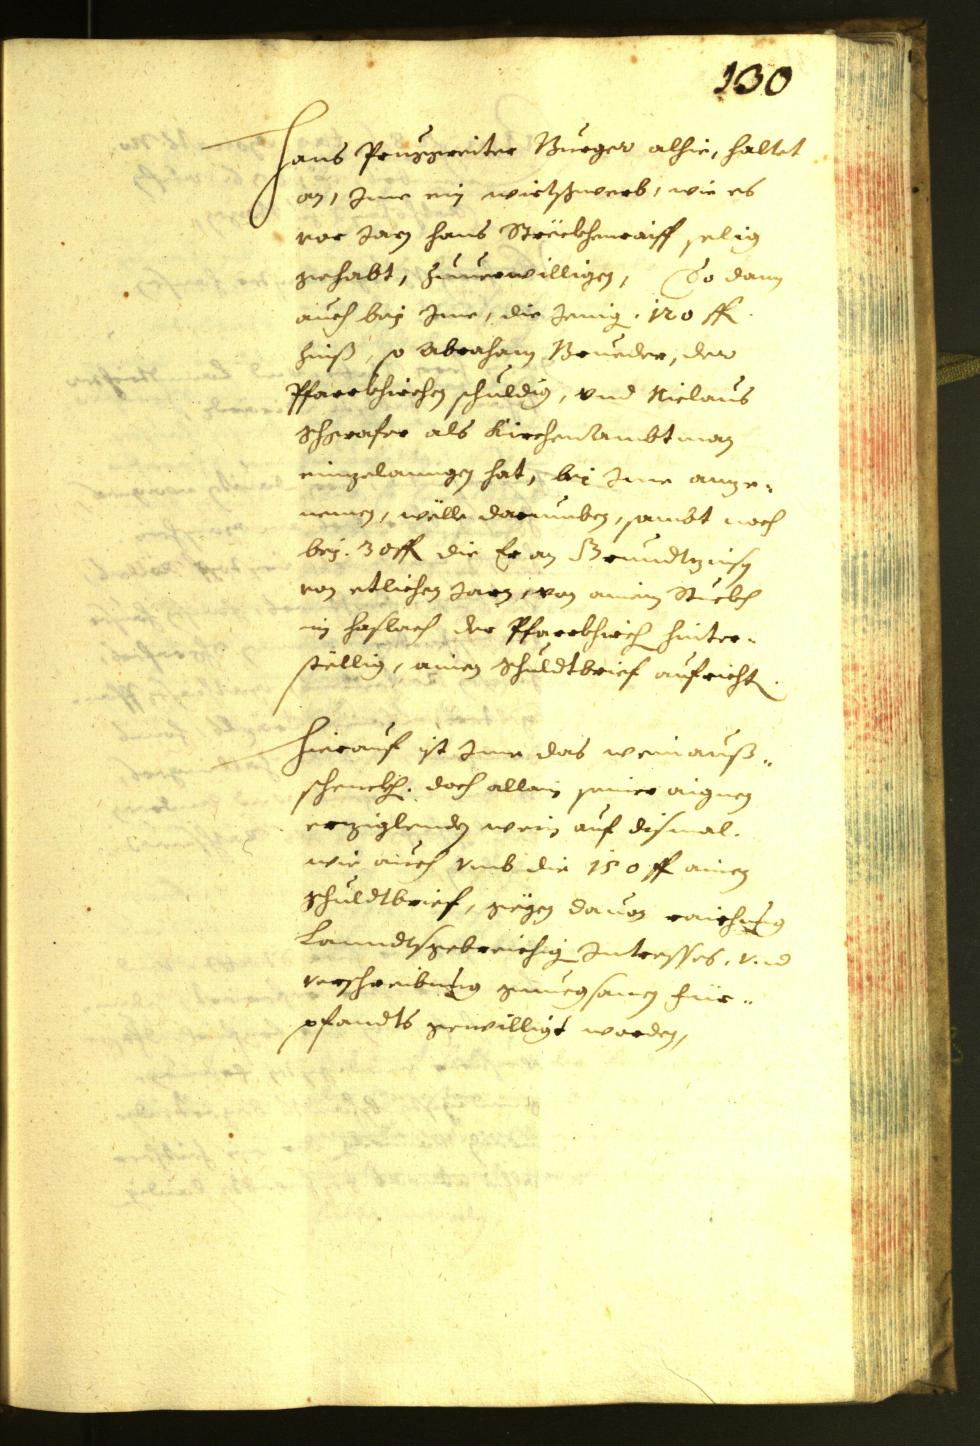 130
Hans Prugkreiter Burger alhie, haltet
an, Ime ein wirtsgwerb, wie es
vor Jarn HansStröckhenraiff selig
gehabt, zuuerwilligen, So dann
auch bey Ime, die Jenig. 120 ff.
Zinß, so Abraham Brueder, der
Pfarrkhirchen schuldig, vnd Niclaus
Schgrafer als Kirchen Ambtman
eingelanngen hat, bey Ime anze„
nemen, wölle darumben, sambt noch
bey. 30 ff die Er an Grundtzinsn
von etlichen Jarn, von ainem Stuckh
in Haslach der Pfarrkhirch hinter„
stellig, ainen Schuldtbrief aufricht.
Hierauf ist Ime das weinauß„
schenckh. doch allain seiner aignen
erziglenden wein auf dismal.
wie auch vmb die 150 ff ainen
Schuldtbrief, gegen dauon raichung
Lanndtsgebreichig Intresses, vnd
verschreibung gnuegsamen Für„
pfandts gewilligt worden,